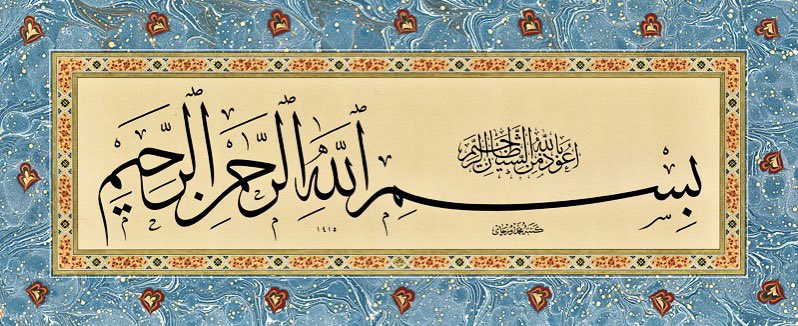 اعوذ بالله من الشيطان الرجيم
بِسْمِ اللّٰهِ الرَّحْمٰنِ الرَّحِيمِ
كتبه محمد اوزچاى
١٤١٥